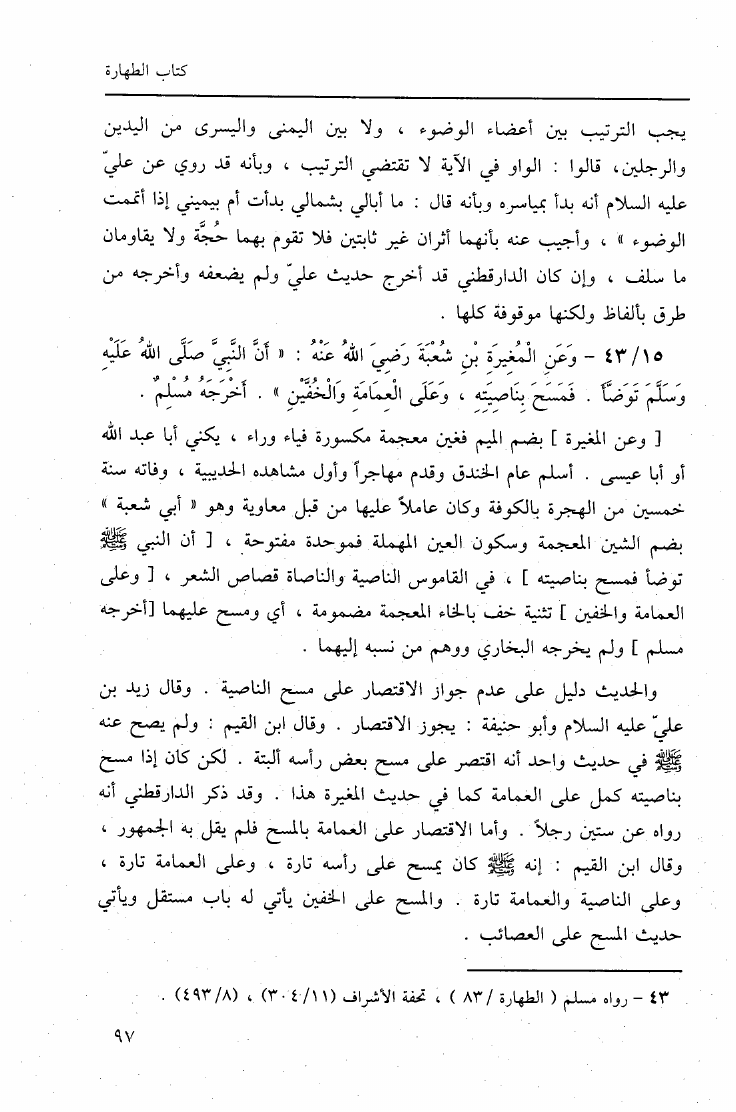 كتاب الطهارة
يجب الترتيب بين أعضاء الوضوء ، ولا بين اليمنى واليسرى من اليدين
والرجلين، قالوا : الواو في الآية لا تقتضي الترتيب ، وبأنه قد روي عن عليّ
عليه السلام أنه بدأ بمياسره وبأنه قال : ما أبالي بشمالي بدأت أم بيميني إذا أتممت
الوضوء » ، وأجيب عنه بأنهما أثران غير ثابتين فلا تقوم بهما حُجَّة ولا يقاومان
ما سلف ، وإن كان الدارقطني قد أخرج حديث عليّ ولم يضعفه وأخرجه من
طرق بألفاظ ولكنها موقوفة كلها .
٤٣/١٥ - وَعَنِ الْمُغِيرَةِ بْنِ شُعْبَةَ رَضِيَ اللهُ عَنْهُ : « أَنَّ النَّبِيَّ صَلَّى اللهُ عَلَيْهِ
وَسَلَّمَ تَوَضَّأَ . فَمَسَحَ بِنَاصِيَتِهِ ، وَعَلَى الْعِمَامَةِ وَالْخُفَّيْنِ » . أَخْرَجَهُ مُسْلِمٌ .
[ وعن المغيرة ] بضم الميم فغين معجمة مكسورة فياء وراء ، يكني أبا عبد الله
أو أبا عيسى . أسلم عام الخندق وقدم مهاجراً وأول مشاهده الحديبية ، وفاته سنة
خمسين من الهجرة بالكوفة وكان عاملاً عليها من قبل معاوية وهو « أبي شعبة »
بضم الشين المعجمة وسكون العين المهملة فموحدة مفتوحة ، [ أن النبي ﷺ
توضأ فمسح بناصيته ] ، في القاموس الناصية والناصاة قصاص الشعر ، [ وعلى
العمامة والخفين ] تثنية خف بالخاء المعجمة مضمومة ، أي ومسح عليهما [أخرجه
مسلم ] ولم يخرجه البخاري ووهم من نسبه إليهما .
والحديث دليل على عدم جواز الاقتصار على مسح الناصية . وقال زيد بن
عليّ عليه السلام وأبو حنيفة : يجوز الاقتصار . وقال ابن القيم : ولم يصح عنه
ﷺ في حديث واحد أنه اقتصر على مسح بعض رأسه ألبتة . لكن كان إذا مسح
بناصيته كمل على العمامة كما في حديث المغيرة هذا . وقد ذكر الدارقطني أنه
رواه عن ستين رجلاً . وأما الاقتصار على العمامة بالمسح فلم يقل به الجمهور ،
وقال ابن القيم : إنه ﷺ كان يمسح على رأسه تارة ، وعلى العمامة تارة ،
وعلى الناصية والعمامة تارة . والمسح على الخفين يأتي له باب مستقل ويأتي
حديث المسح على العصائب .
٤٣ - رواه مسلم ( الطهارة /٨٣ ) ، تحفة الأشراف (٣٠٤/١١) ، (٤٩٣/٨) .
٩٧